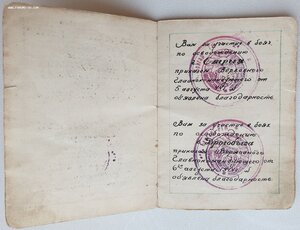 Вам за участие в боях
по освобождению
г. Стрыя
приказом Верховного
Главнокомандующего от
5 августа
объявлена благодарность
Вам за участие в боях
по освобождению
г. Дрогобыча
приказом Верховного
Главнокомандующего от
6го августа
объявлена благодарность